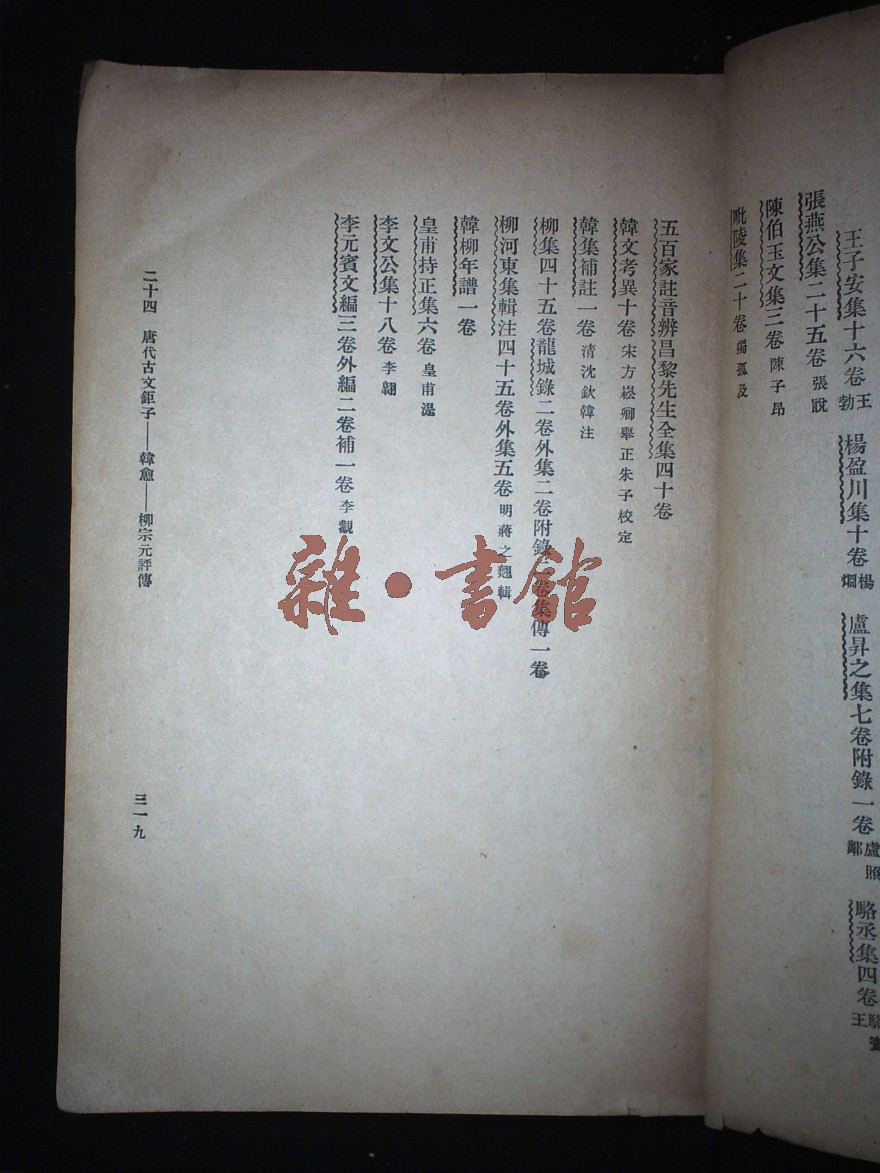 王子安集十六卷 王勃 楊盈川集十卷 楊烱 盧昇之集七卷附錄一卷 盧照鄰 駱丞集四卷
張燕公集二十五卷 張說
陳伯玉文集三卷 陳子昂
毗陵集二十卷 獨孤及
五百家註音辨昌黎先生全集四十卷
韓文考異十卷 宋方崧卿舉正朱子校定
韓集補註一卷 清沈欽韓注
柳集四十五卷龍城錄二卷外集二卷附錄二卷集傳一卷
柳河東集輯注四十五卷外集五卷 明蔣之翹輯
韓柳年譜一卷
皇甫持正集六卷 皇甫湜
李文公集十八卷 李翺
李元賓文編三卷外編二卷補一卷 李觀
二十四 唐代古文鉅子——韓愈——柳宗元評傳
三一九
雜·書館